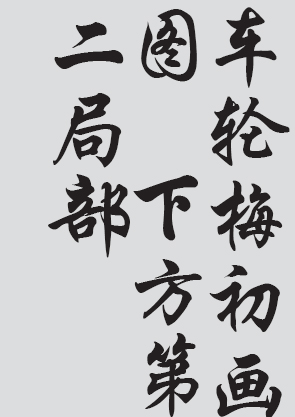 车轮梅初画
图 下方第
二局部